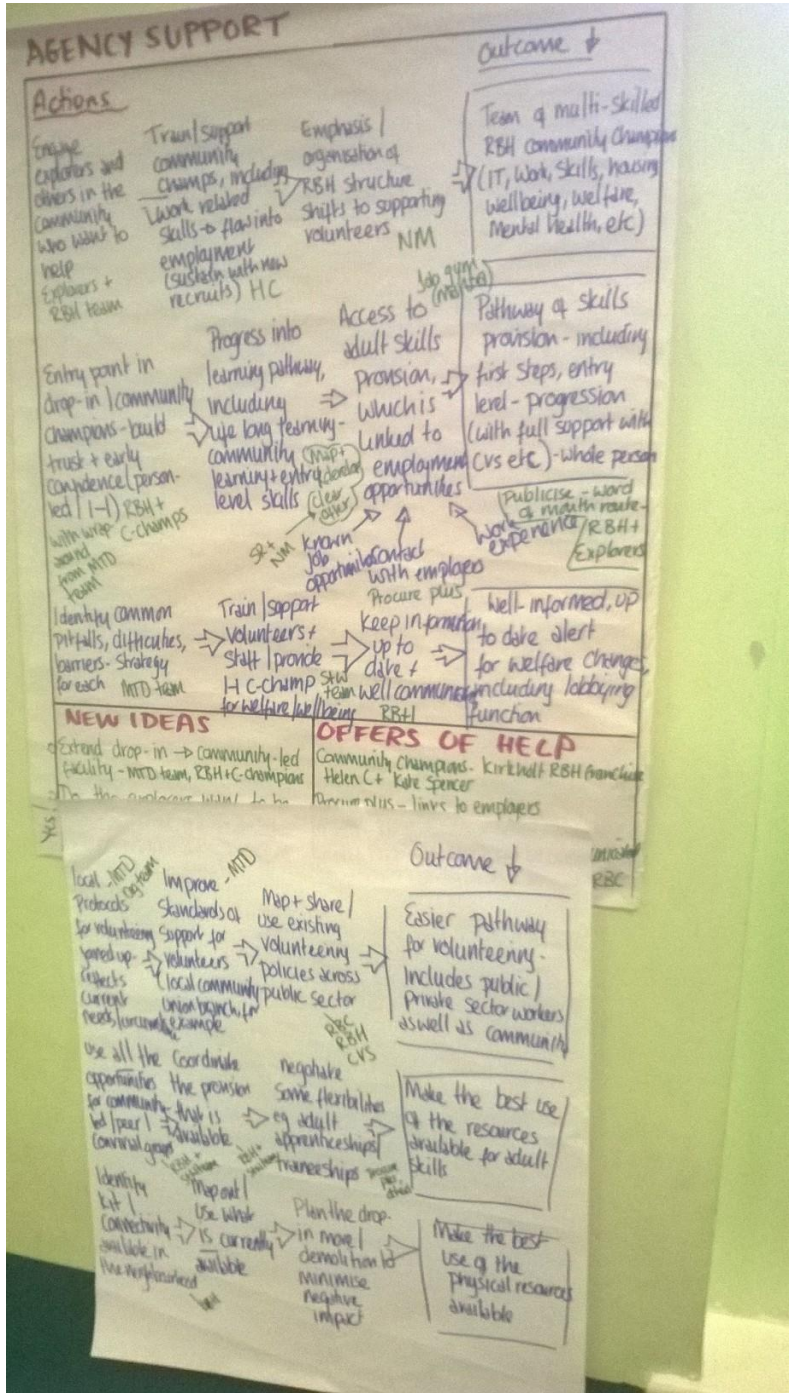 AGENCY SUPPORT
Actions
Outcome ↓
Engage
explorers and
others in the
community
who want to
help
Explorers +
RBH team
Train/support
community
champs, including
work related
skills → flow into
employment
(sustain with new
recruits) HC
Emphasis/
organisation of
RBH structure
shifts to supporting
volunteers
NM
Team of multi-skilled
RBH community Champions
(IT, Work, Skills, housing
wellbeing, welfare,
Mental Health, etc)
Entry point in
drop-in/community
champions - build
trust + early
confidence/person-
led/(1-1) RBH+
C-champs
with wrap
around
from MTD
team
Progress into
learning pathway,
including
life long learning -
community
learning + entry
level skills
Map +
clear
offer
SR+
NM
Job gym
Access to
adult skills
provision,
which is
linked to
employment
opportunities
Known
job
opportunities
Contact
with employers
Procure plus
Work
experience
Pathway of skills
provision - including
first steps, entry
level - progression
(with full support with
CVs etc) - whole person
Publicise - word
of mouth route -
RBH+
Explorers
Identify common
pitfalls, difficulties,
barriers - strategy
for each MTD team
Train/support
volunteers +
staff/provide
C-champ
for welfare/wellbeing
Keep information
up to
date +
well communicated
RBH
team
Well-informed, up
to date alert
for welfare changes,
including lobbying
function
NEW IDEAS
Extend drop-in → community-led
facility - MTD team, RBH+C-champions
OFFERS OF HELP
Community Champions - Kirkholt RBH franchise
Helen C + Kate Spencer
Procure plus - links to employers
Yes!
RBC
Outcome ↓
local - MTD
Protocols
for volunteering
joined up -
respects
current
needs/
Improve - MTD
Standards of
Support for
volunteers
(local community
union branch, for
example
Map + share/
use existing
volunteering
policies across
public sector
RBC
RBH
CVS
Easier pathway
for volunteering -
Includes public/
private sector workers
aswell as community
use all the
opportunities
for community-
led/peer/
groups
Coordinate
the provision
that is
available
RBH +
negotiate
Some flexibilities
eg adult
apprenticeships/
traineeships
Make the best use
of the resources
available for adult
skills
Identify
kit/
connectivity
available in
the neighbourhood
Map out/
use what
is currently
available
Plan the drop-
in move/
demolition to
minimise
negative
impact
Make the best
use of the
physical resources
available